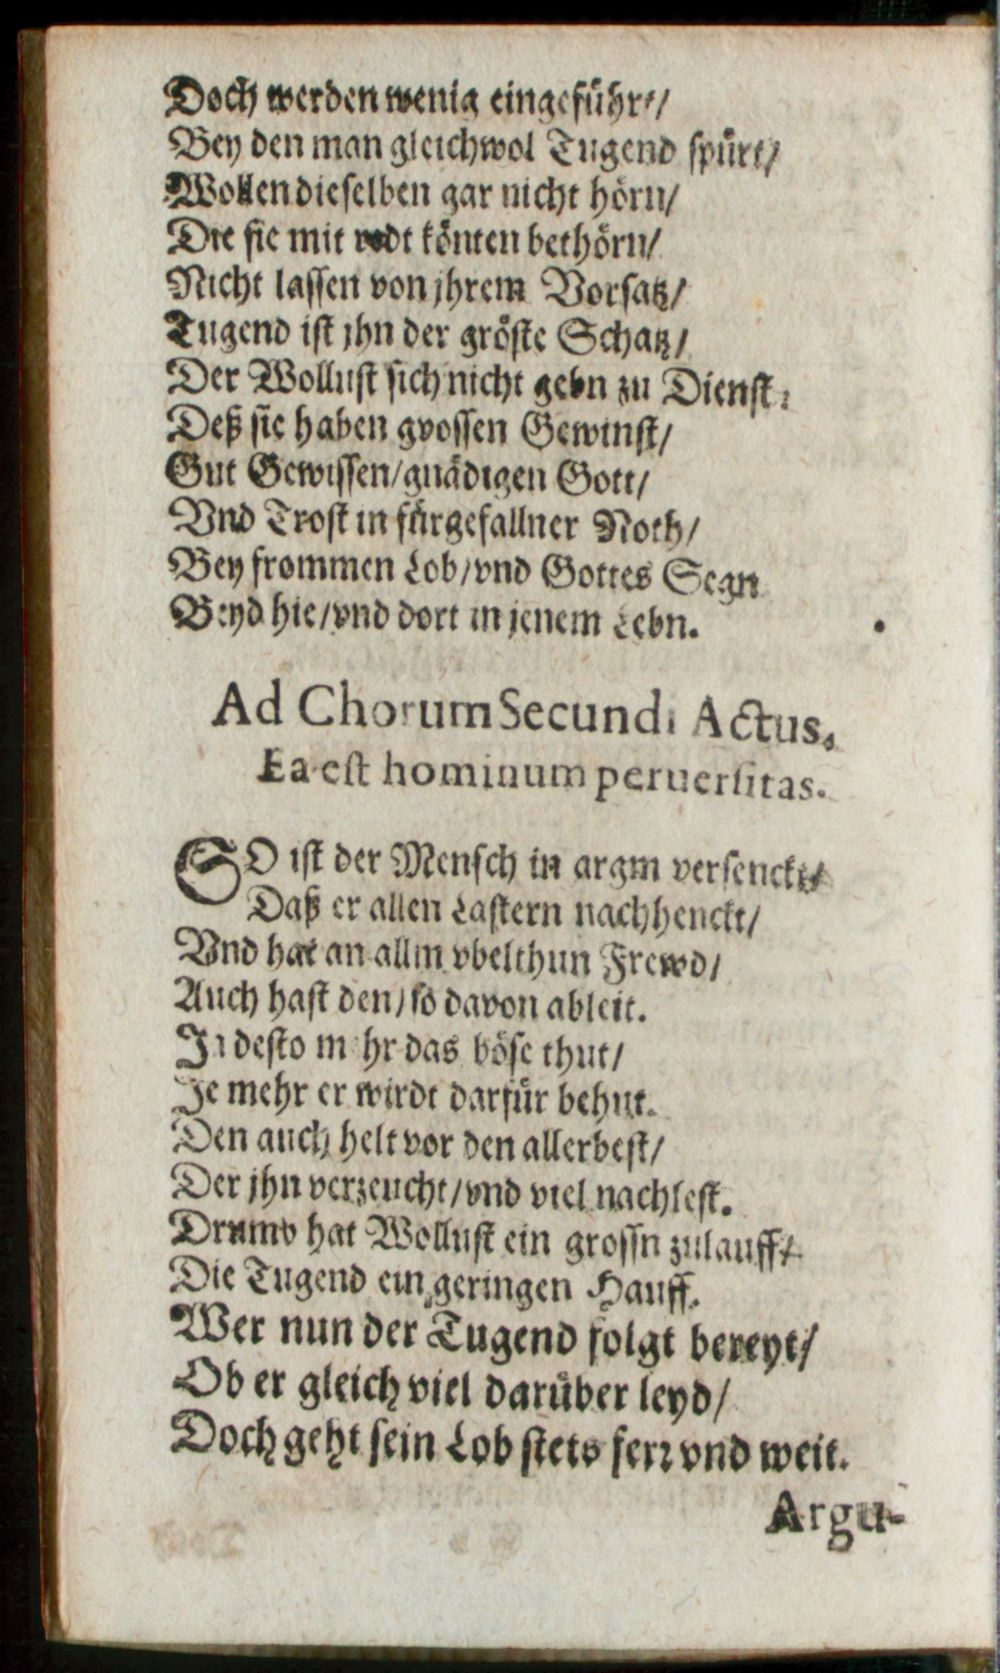 Doch werden wenig eingeführt/
Bey den man gleichwol Tugend spürt/
Wollen dieselben gar nicht hörn/
Die sie mit redt könten bethörn/
Nicht lassen von jhrem Vorsatz/
Tugend ist jhn der gröste Schatz/
Der Wollust sich nicht gebn zu Dienst:
Deß sie haben grossen Gewinst/
Gut Gewissen/gnädigen Gott/
Vnd Trost in fürgefallner Noth/
Bey frommen Lob/vnd Gottes Segn
Beyd hie/vnd dort in jenem Lebn.
Ad Chorum Secundi Actus.
Ea est hominum peruersitas.
SO ist der Mensch in argm versenckt/
Daß er allen Lastern nachhenckt/
Vnd hat an allm vbelthun Frewd/
Auch hast den/so davon ableit.
Ja desto mehr das böse thut/
Je mehr er wirdt darfür behut.
Den auch helt vor den allerbest/
Der jhn verzeucht/vnd viel nachlest.
Drumb hat Wollust ein grossn zulauff/
Die Tugend ein geringen Hauff.
Wer nun der Tugend folgt bereyt/
Ob er gleich viel darüber leyd/
Doch geht sein Lob stets ferr vnd weit.
Argu-